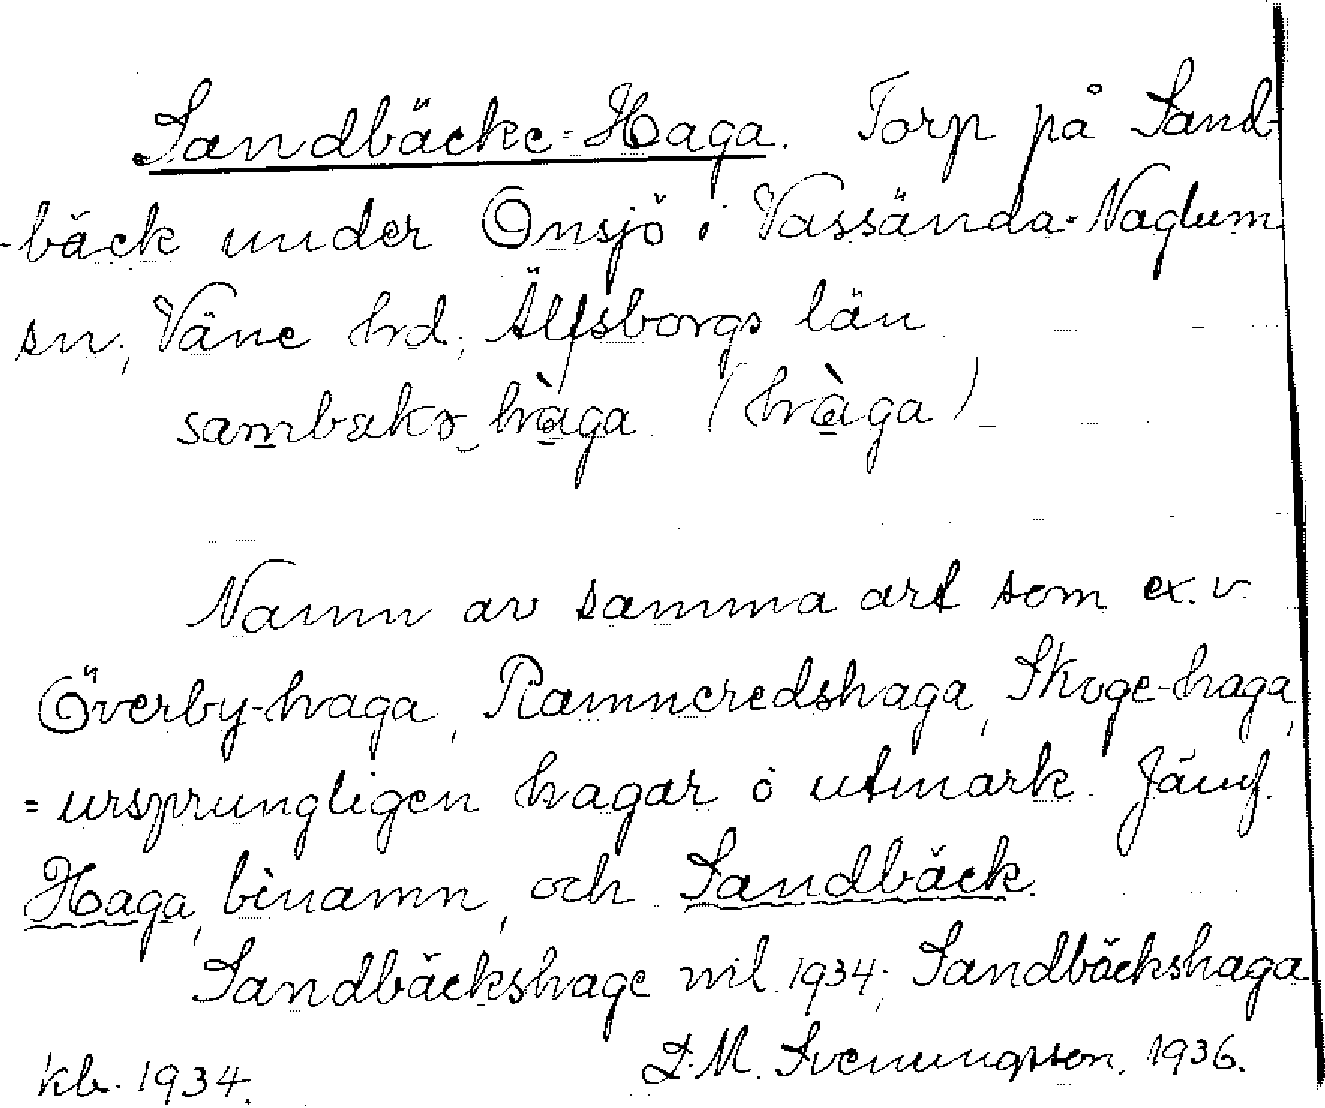 Sandbäcke-Haga. Torp på Sand-
-bäck under Onsjö i Vassända-Naglum
sn, Väne hd, Älfsborgs län
(hàga)
Namn av samma art som ex. v.
Överby-haga, Ramneredshaga, Skoge-haga,
= ursprungligen hagar å utmark. Jämf.
Haga, binamn, och Sandbäck.
Sandbäckshage mil 1934; Sandbäckshaga
kb. 1934. D.M. Svenungsson. 1936.